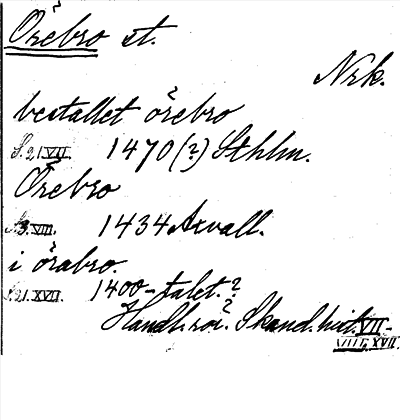 Örebro st.
Nrk.
bestallet örebro
S. 21 VII. 1470 (?) Sthlm.
Örebro
VII. 1434 Axvall.
i örabro.
XVII. 1400-talet. ?
Handl. rör. Skand. hist. VII-
VIII, XVII